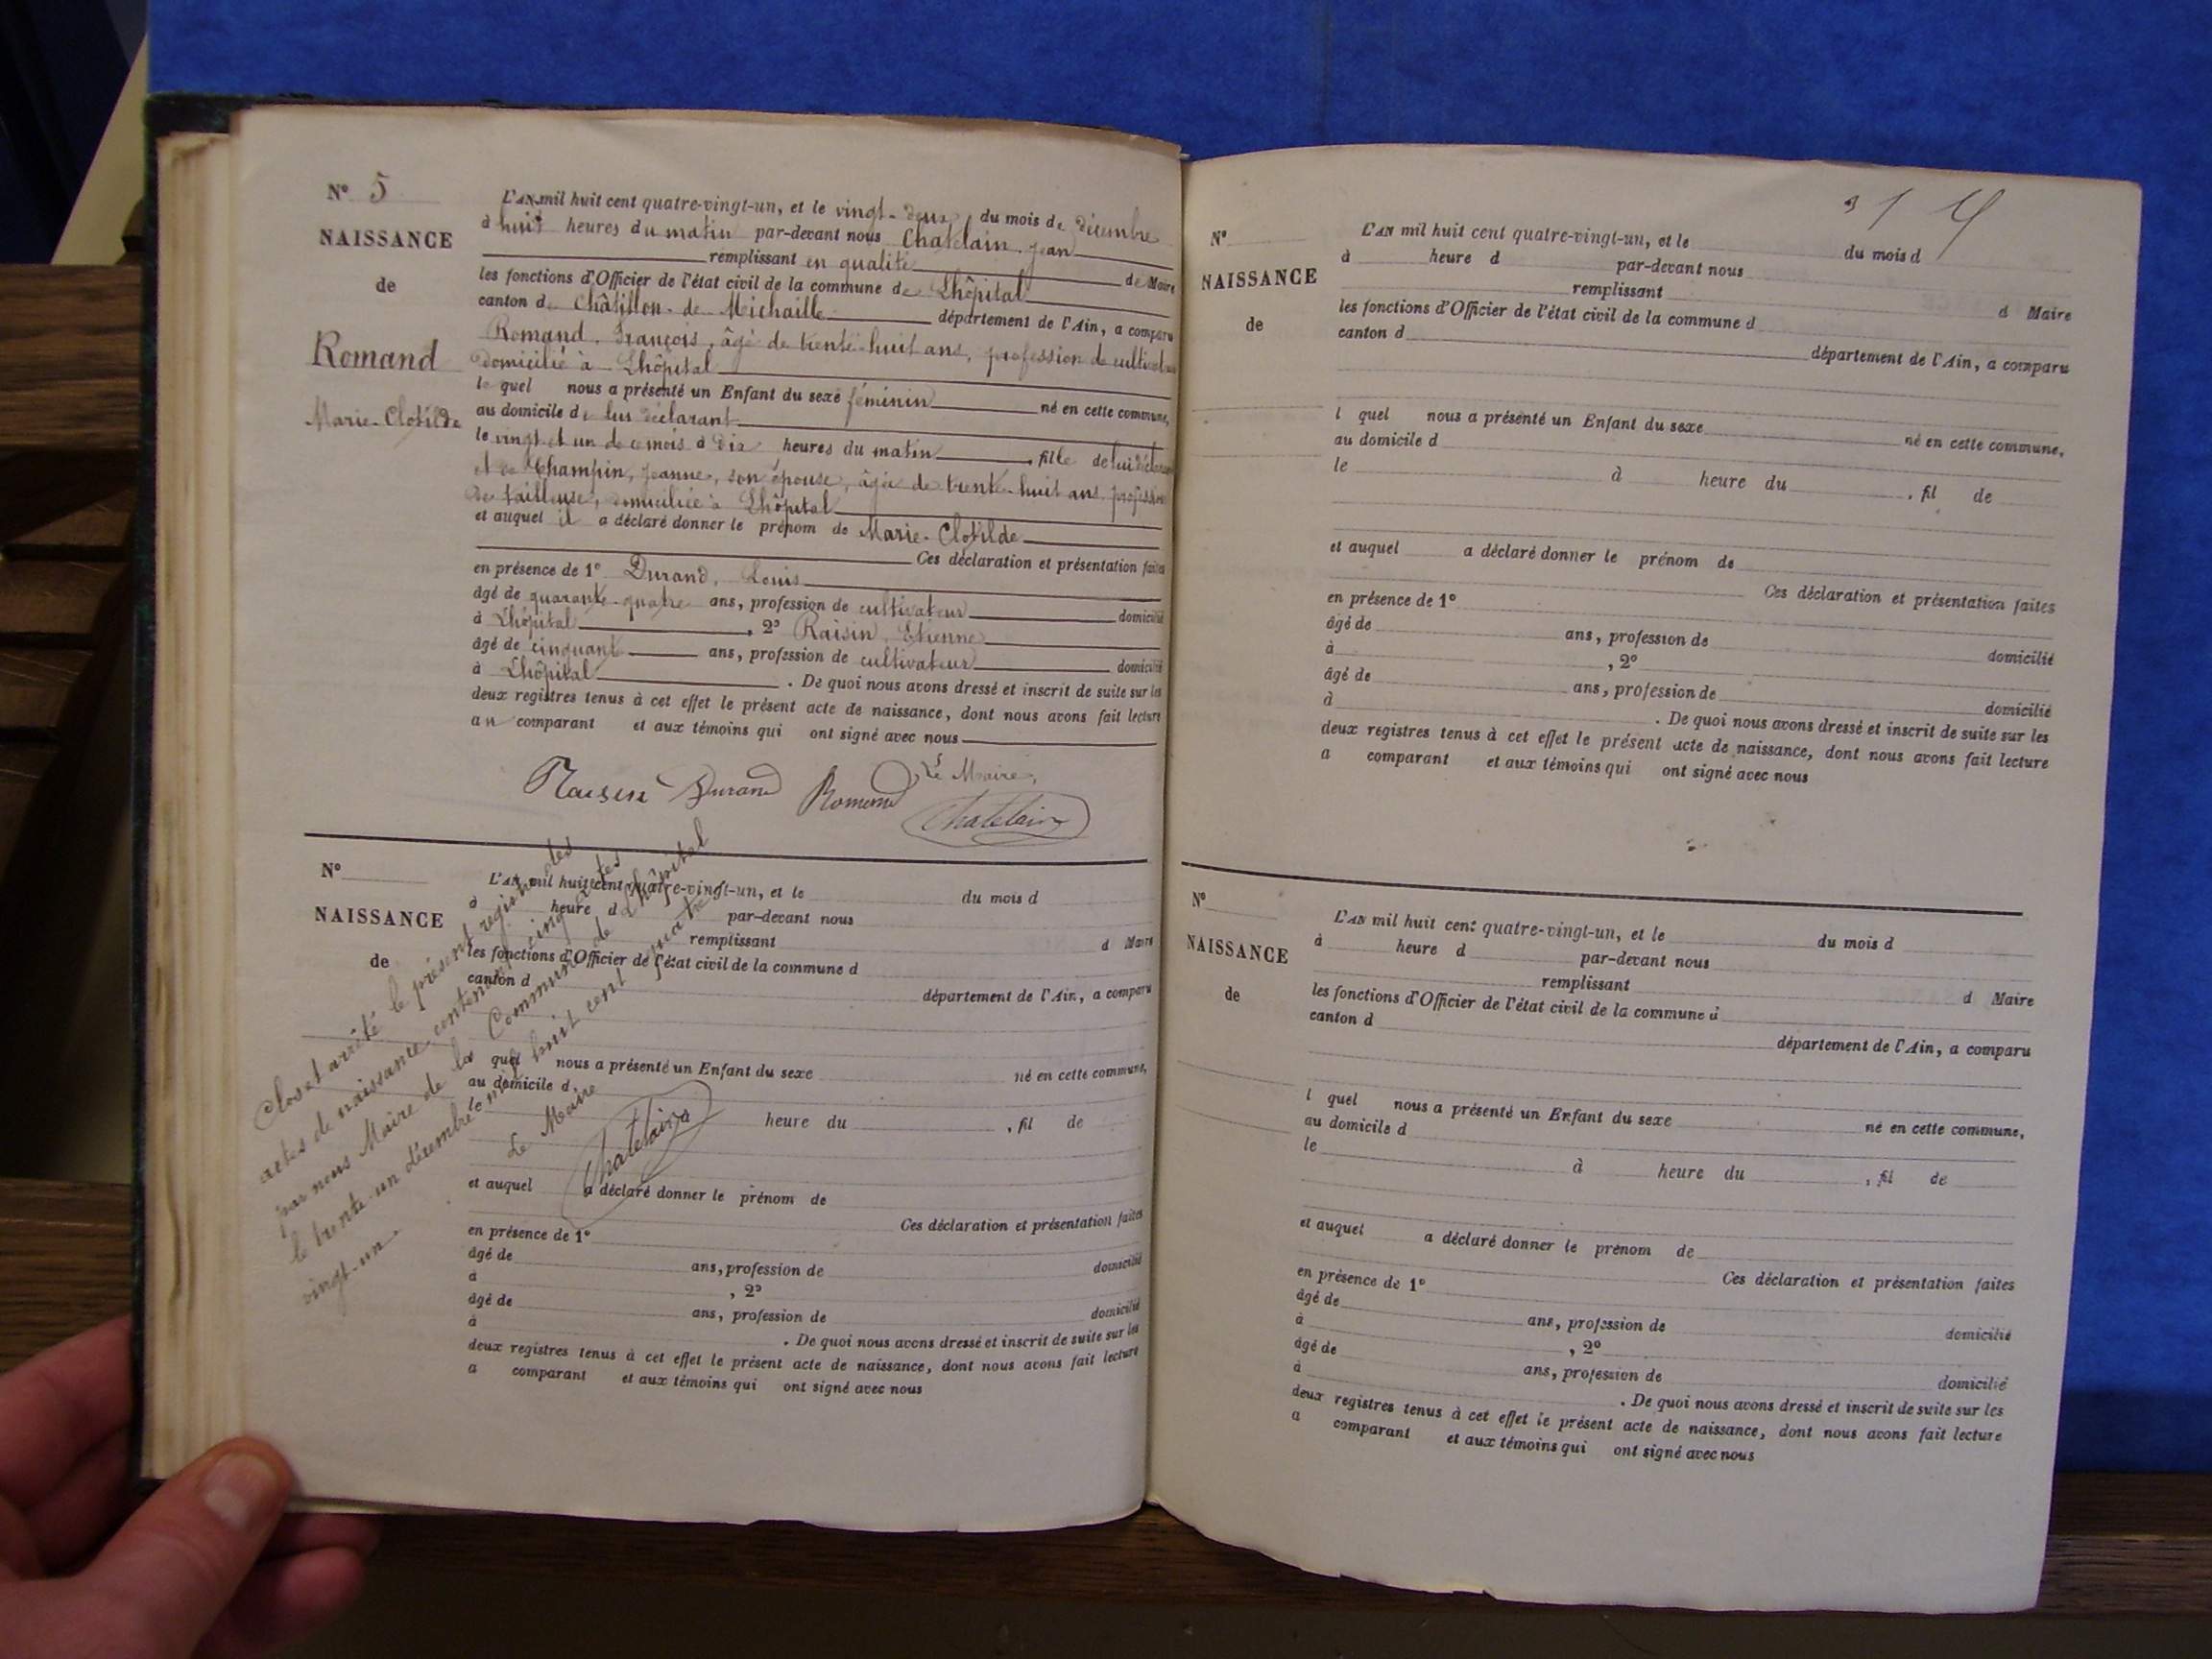 N° 5
NAISSANCE
de
Romand
Marie-Clotilde
L'AN mil huit cent quatre-vingt-un, et le vingt-deux du mois de décembre
à huit heures du matin par-devant nous Chatelain Jean
remplissant en qualité de Maire
les fonctions d'Officier de l'état civil de la commune de Lhôpital
canton de Châtillon-de-Michaille département de l'Ain, a comparu
Romand, François, âgé de trente-huit ans, profession de cultivateur
domicilié à Lhôpital
le quel nous a présenté un Enfant du sexe féminin né en cette commune,
au domicile de lui déclarant
le vingt et un de ce mois à dix heures du matin, fille de lui déclarant
et de Champin, Jeanne, son épouse, âgée de trente-huit ans profession
de tailleuse, domiciliée à Lhôpital
et auquel il a déclaré donner le prénom de Marie-Clotilde
Ces déclaration et présentation faites
en présence de 1° Durand, Louis
âgé de quarante-quatre ans, profession de cultivateur domicilié
à Lhôpital, 2° Raisin, Etienne
âgé de cinquante ans, profession de cultivateur domicilié
à Lhôpital. De quoi nous avons dressé et inscrit de suite sur les
deux registres tenus à cet effet le présent acte de naissance, dont nous avons fait lecture
au comparant et aux témoins qui ont signé avec nous
Le Maire,
Raisin Durand Romand Chatelain
N°
NAISSANCE
de
L'AN mil huit cent quatre-vingt-un, et le du mois d
à heure d par-devant nous
remplissant d Maire
les fonctions d'Officier de l'état civil de la commune d
canton d département de l'Ain, a comparu
quel nous a présenté un Enfant du sexe né en cette commune,
au domicile d
le heure du , fil de
et auquel a déclaré donner le prénom de
Ces déclaration et présentation faites
en présence de 1°
âgé de ans, profession de domicilié
à , 2°
âgé de ans, profession de domicilié
à . De quoi nous avons dressé et inscrit de suite sur les
deux registres tenus à cet effet le présent acte de naissance, dont nous avons fait lecture
a comparant et aux témoins qui ont signé avec nous
Clos et arrêté le présent registre des
actes de naissance, contenant cinq actes
par nous Maire de la Commune de Lhôpital
le trente-un décembre mil huit cent quatre
vingt-un.
Le Maire
Chatelain
N°
NAISSANCE
de
L'AN mil huit cent quatre-vingt-un, et le du mois d
à heure d par-devant nous
remplissant d Maire
les fonctions d'Officier de l'état civil de la commune d
canton d département de l'Ain, a comparu
l quel nous a présenté un Enfant du sexe né en cette commune,
au domicile d
le à heure du , fil de
et auquel a déclaré donner le prénom de
Ces déclaration et présentation faites
en présence de 1°
âgé de ans, profession de domicilié
à , 2°
âgé de ans, profession de domicilié
à . De quoi nous avons dressé et inscrit de suite sur les
deux registres tenus à cet effet le présent acte de naissance, dont nous avons fait lecture
a comparant et aux témoins qui ont signé avec nous
N°
NAISSANCE
de
L'AN mil huit cent quatre-vingt-un, et le du mois d
à heure d par-devant nous
remplissant d Maire
les fonctions d'Officier de l'état civil de la commune d
canton d département de l'Ain, a comparu
l quel nous a présenté un Enfant du sexe né en cette commune,
au domicile d
le à heure du , fil de
et auquel a déclaré donner le prénom de
Ces déclaration et présentation faites
en présence de 1°
âgé de ans, profession de domicilié
à , 2°
âgé de ans, profession de domicilié
à . De quoi nous avons dressé et inscrit de suite sur les
deux registres tenus à cet effet le présent acte de naissance, dont nous avons fait lecture
a comparant et aux témoins qui ont signé avec nous